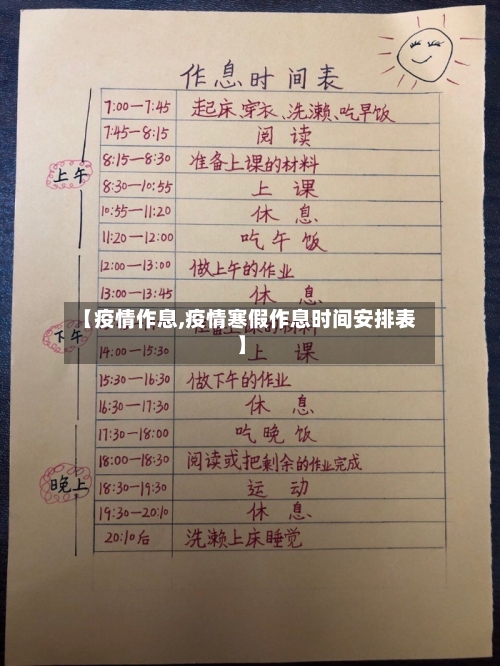 作息时间表
7:00—7:45 起床、穿衣、洗濑、吃早饭
7:45—8:15 阅读
上午
8:15—8:30 准备上课的材料
8:30—10:55 上课
10:55—11:20 休息
11:20—12:00 吃午饭
12:00—13:00 做上午的作业
13:00—13:45 休息
【疫情作息,疫情寒假作息时间安排表
】
下午
14:00—15:30 上课
15:30—16:30 做下午的作业
16:30—17:30 休息
17:30—18:00 吃晚饭
18:00—18:30 阅读或把剩余的作业完成
晚上
18:30—19:30 运动
19:30—20:10 休息
20:10后 洗濑上床睡觉